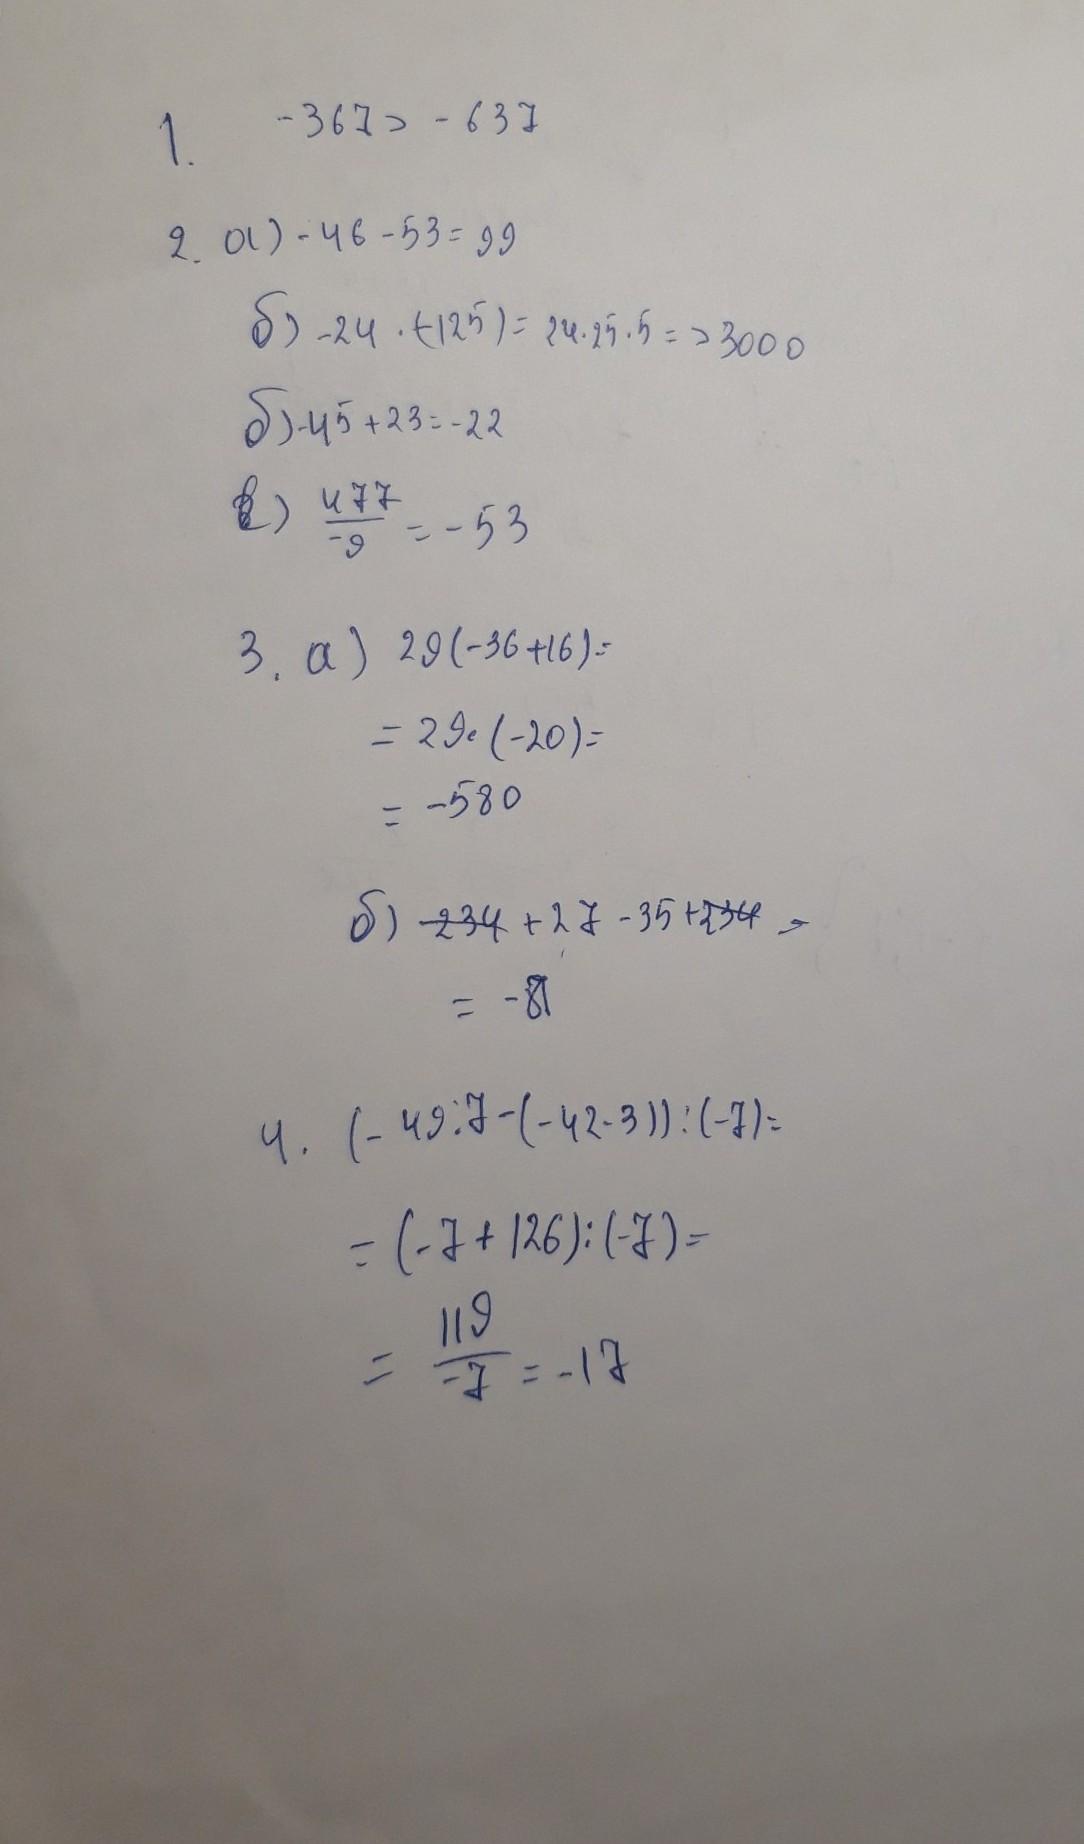 1. -367 > -637
2. а) -46 -53 = 99
б) -24 · (-125) = 24·25·5 = > 3000
б) -45 + 23 = -22
в) 477/-9 = -53
3. а) 29(-36+16) =
= 29·(-20) =
= -580
б) -234 + 27 - 35 + 234 =
= -8
4. (-49:7-(-42·3)):(-7) =
= (-7 + 126):(-7) =
= 119/-7 = -17